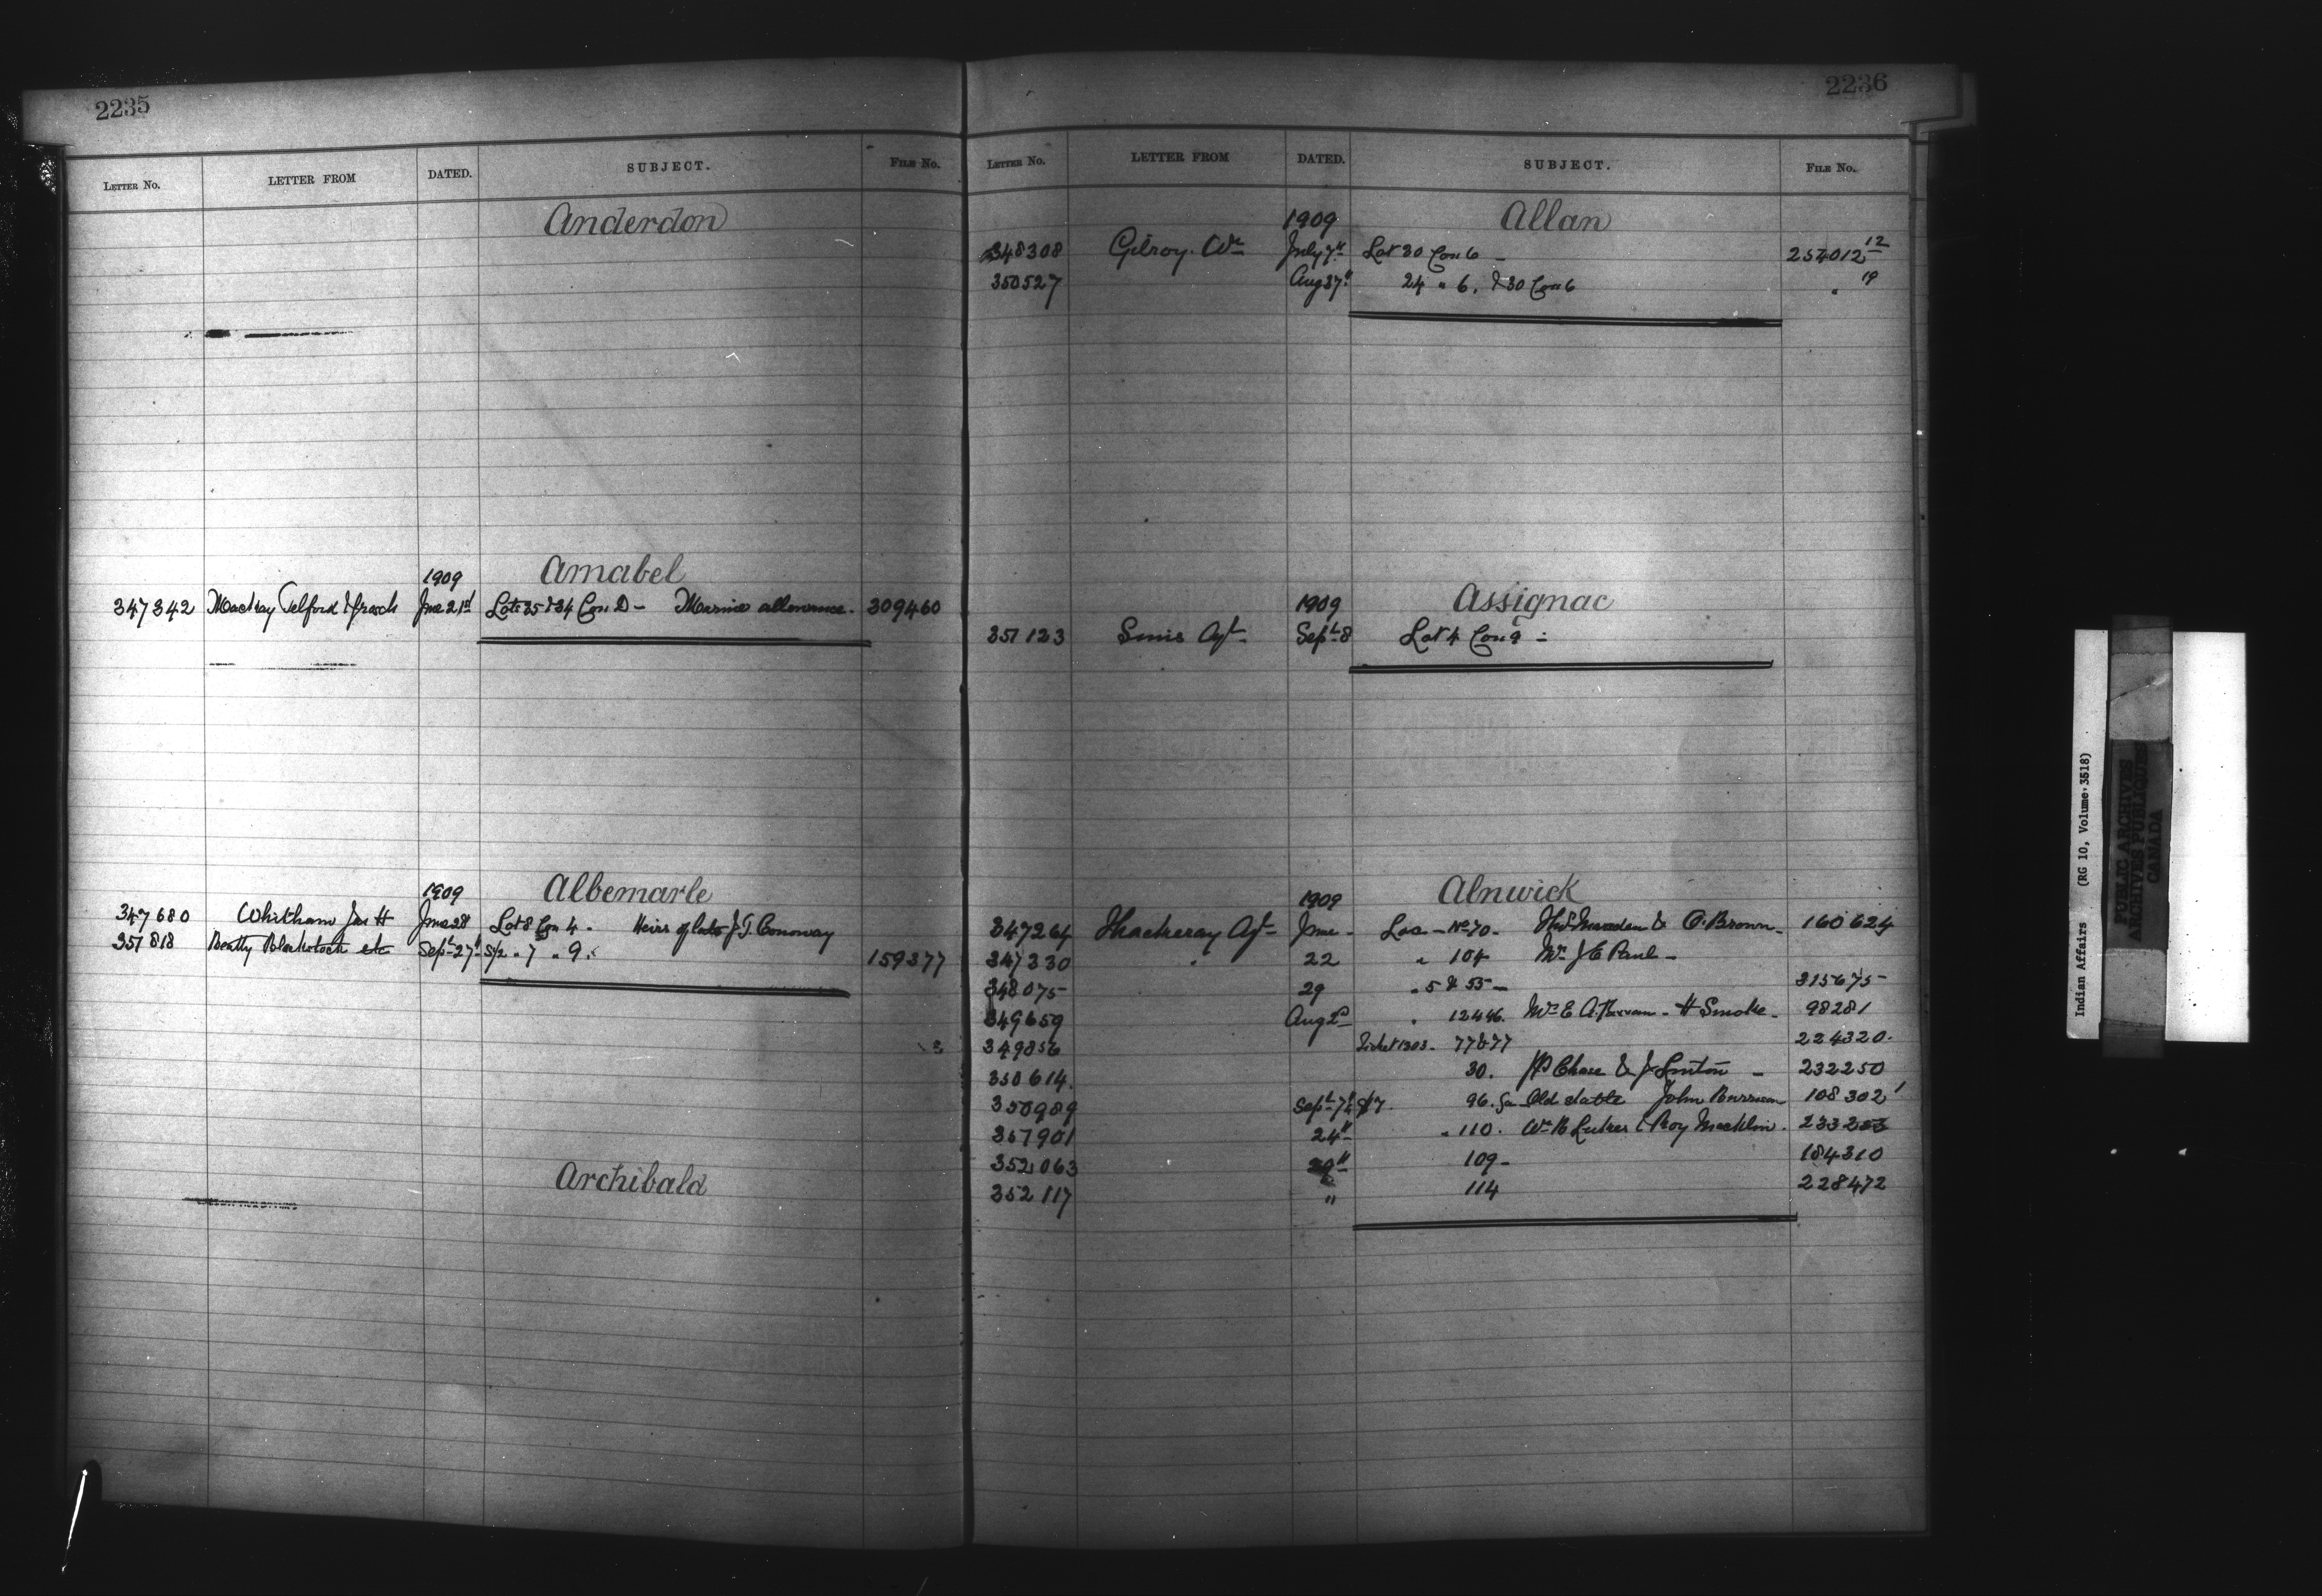 2235
LETTER NO. LETTER FROM DATED. SUBJECT. FILE NO.
Anderdon
1909 Amabel
347342 Mackay Telford & Jun 21st Lots 35 & 34 Con D - allowance. 309460
1909 Albemarle
347680 Whitham Jas H June 28 Lot 8 Con 4. Heirs of late J. T. Conoway
351818 Beatty Blackstock etc Sept 27 S1/2 " 7 " 9. 159377
Archibald
2236
LETTER NO. LETTER FROM DATED. SUBJECT. FILE NO.
1909 Allan
348308 Gilroy Wm July 7th Lot 30 Con 6 - 254012 12
350527 Aug 27 24 " 6. & 30 Con 6 " 19
1909 Assignac
351123 Sims Agt. Sept 8 Lot 4 Con 9 -
1909 Alnwick
347264 Thackeray Agt June - Loc - No 70. & O. Brown - 160624
347330 " 22 " 104 J E Paul -
348075 29 " 5 & 55 - 315675
349659 Aug 2d " 12446. Mrs E A. - H Smoke - 98281
349856 Ticket 1303 - 77 & 77 224320.
350614. 30. Chase & J - 232250
350989 Sept 7th 96. Old John 108302
351901 24th " 110. Wm Roy 233253
352063 29th 109 - 184310
352117 " 114 228472
Indian Affairs (RG 10, Volume 3518)
PUBLIC ARCHIVES
ARCHIVES PUBLIQUES
CANADA